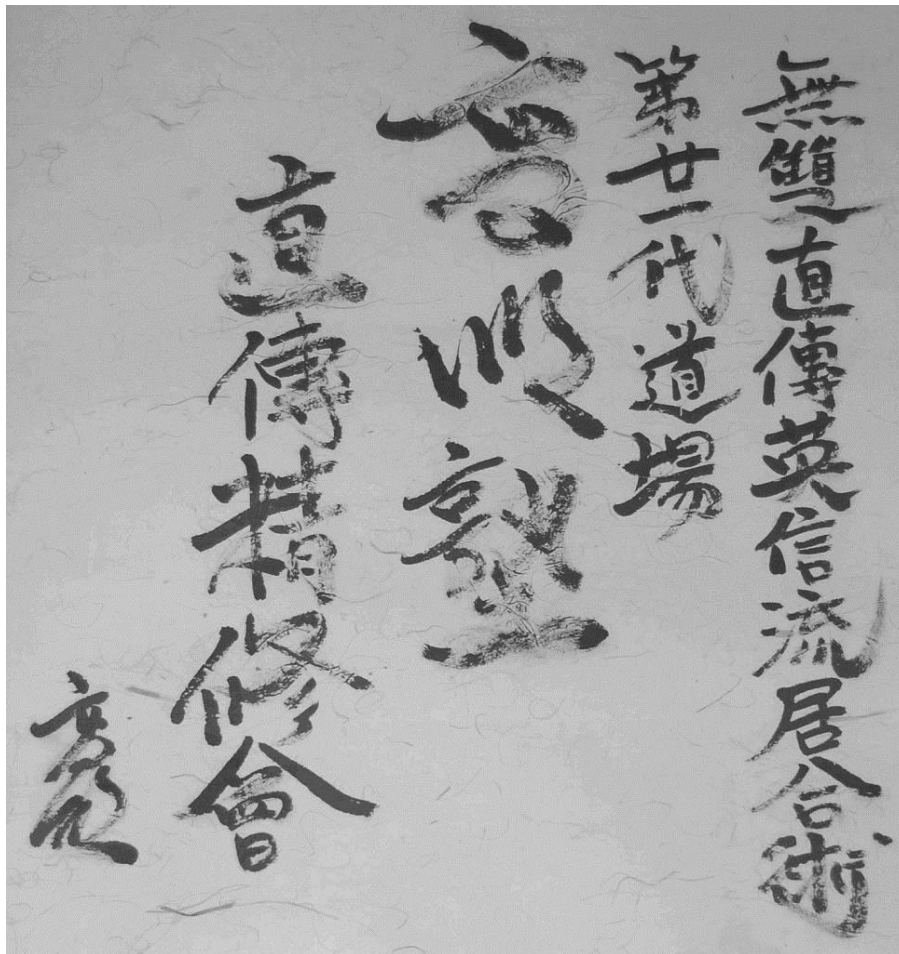 無雙直傳英信流居合術
第廿一代道場
高明塾
直傳精修會
高明